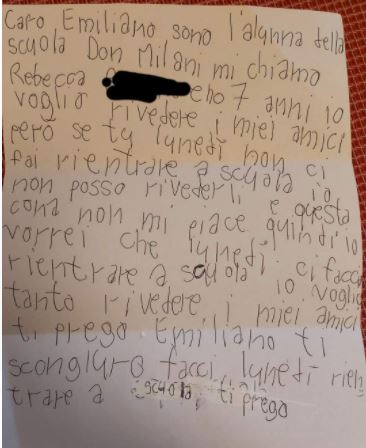 Caro Emiliano sono l'alunna della
scuola Don Milani mi chiamo
Rebecca e ho 7 anni io
voglio rivedere i miei amici
però se tu lunedì non ci
fai rientrare a scuola io
non posso rivederli e questa
cosa non mi piace quindi io
vorrei che lunedì ci facci
rientrare a scuola io voglio
tanto rivedere i miei amici
ti prego Emiliano ti
scongiuro facci lunedì rien
trare a scuola ti prego